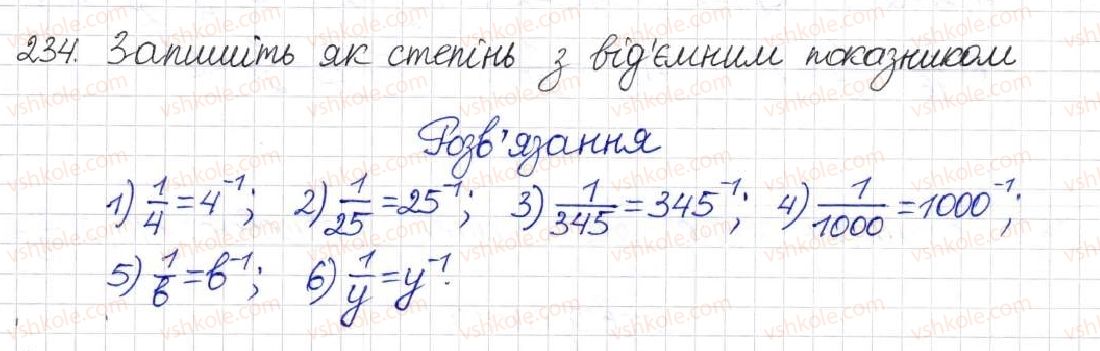 234. Запишіть як степінь з від'ємним показником
Розв'язання
1) 1/4 = 4⁻¹; 2) 1/25 = 25⁻¹; 3) 1/345 = 345⁻¹; 4) 1/1000 = 1000⁻¹;
5) 1/в = в⁻¹; 6) 1/y = y⁻¹.